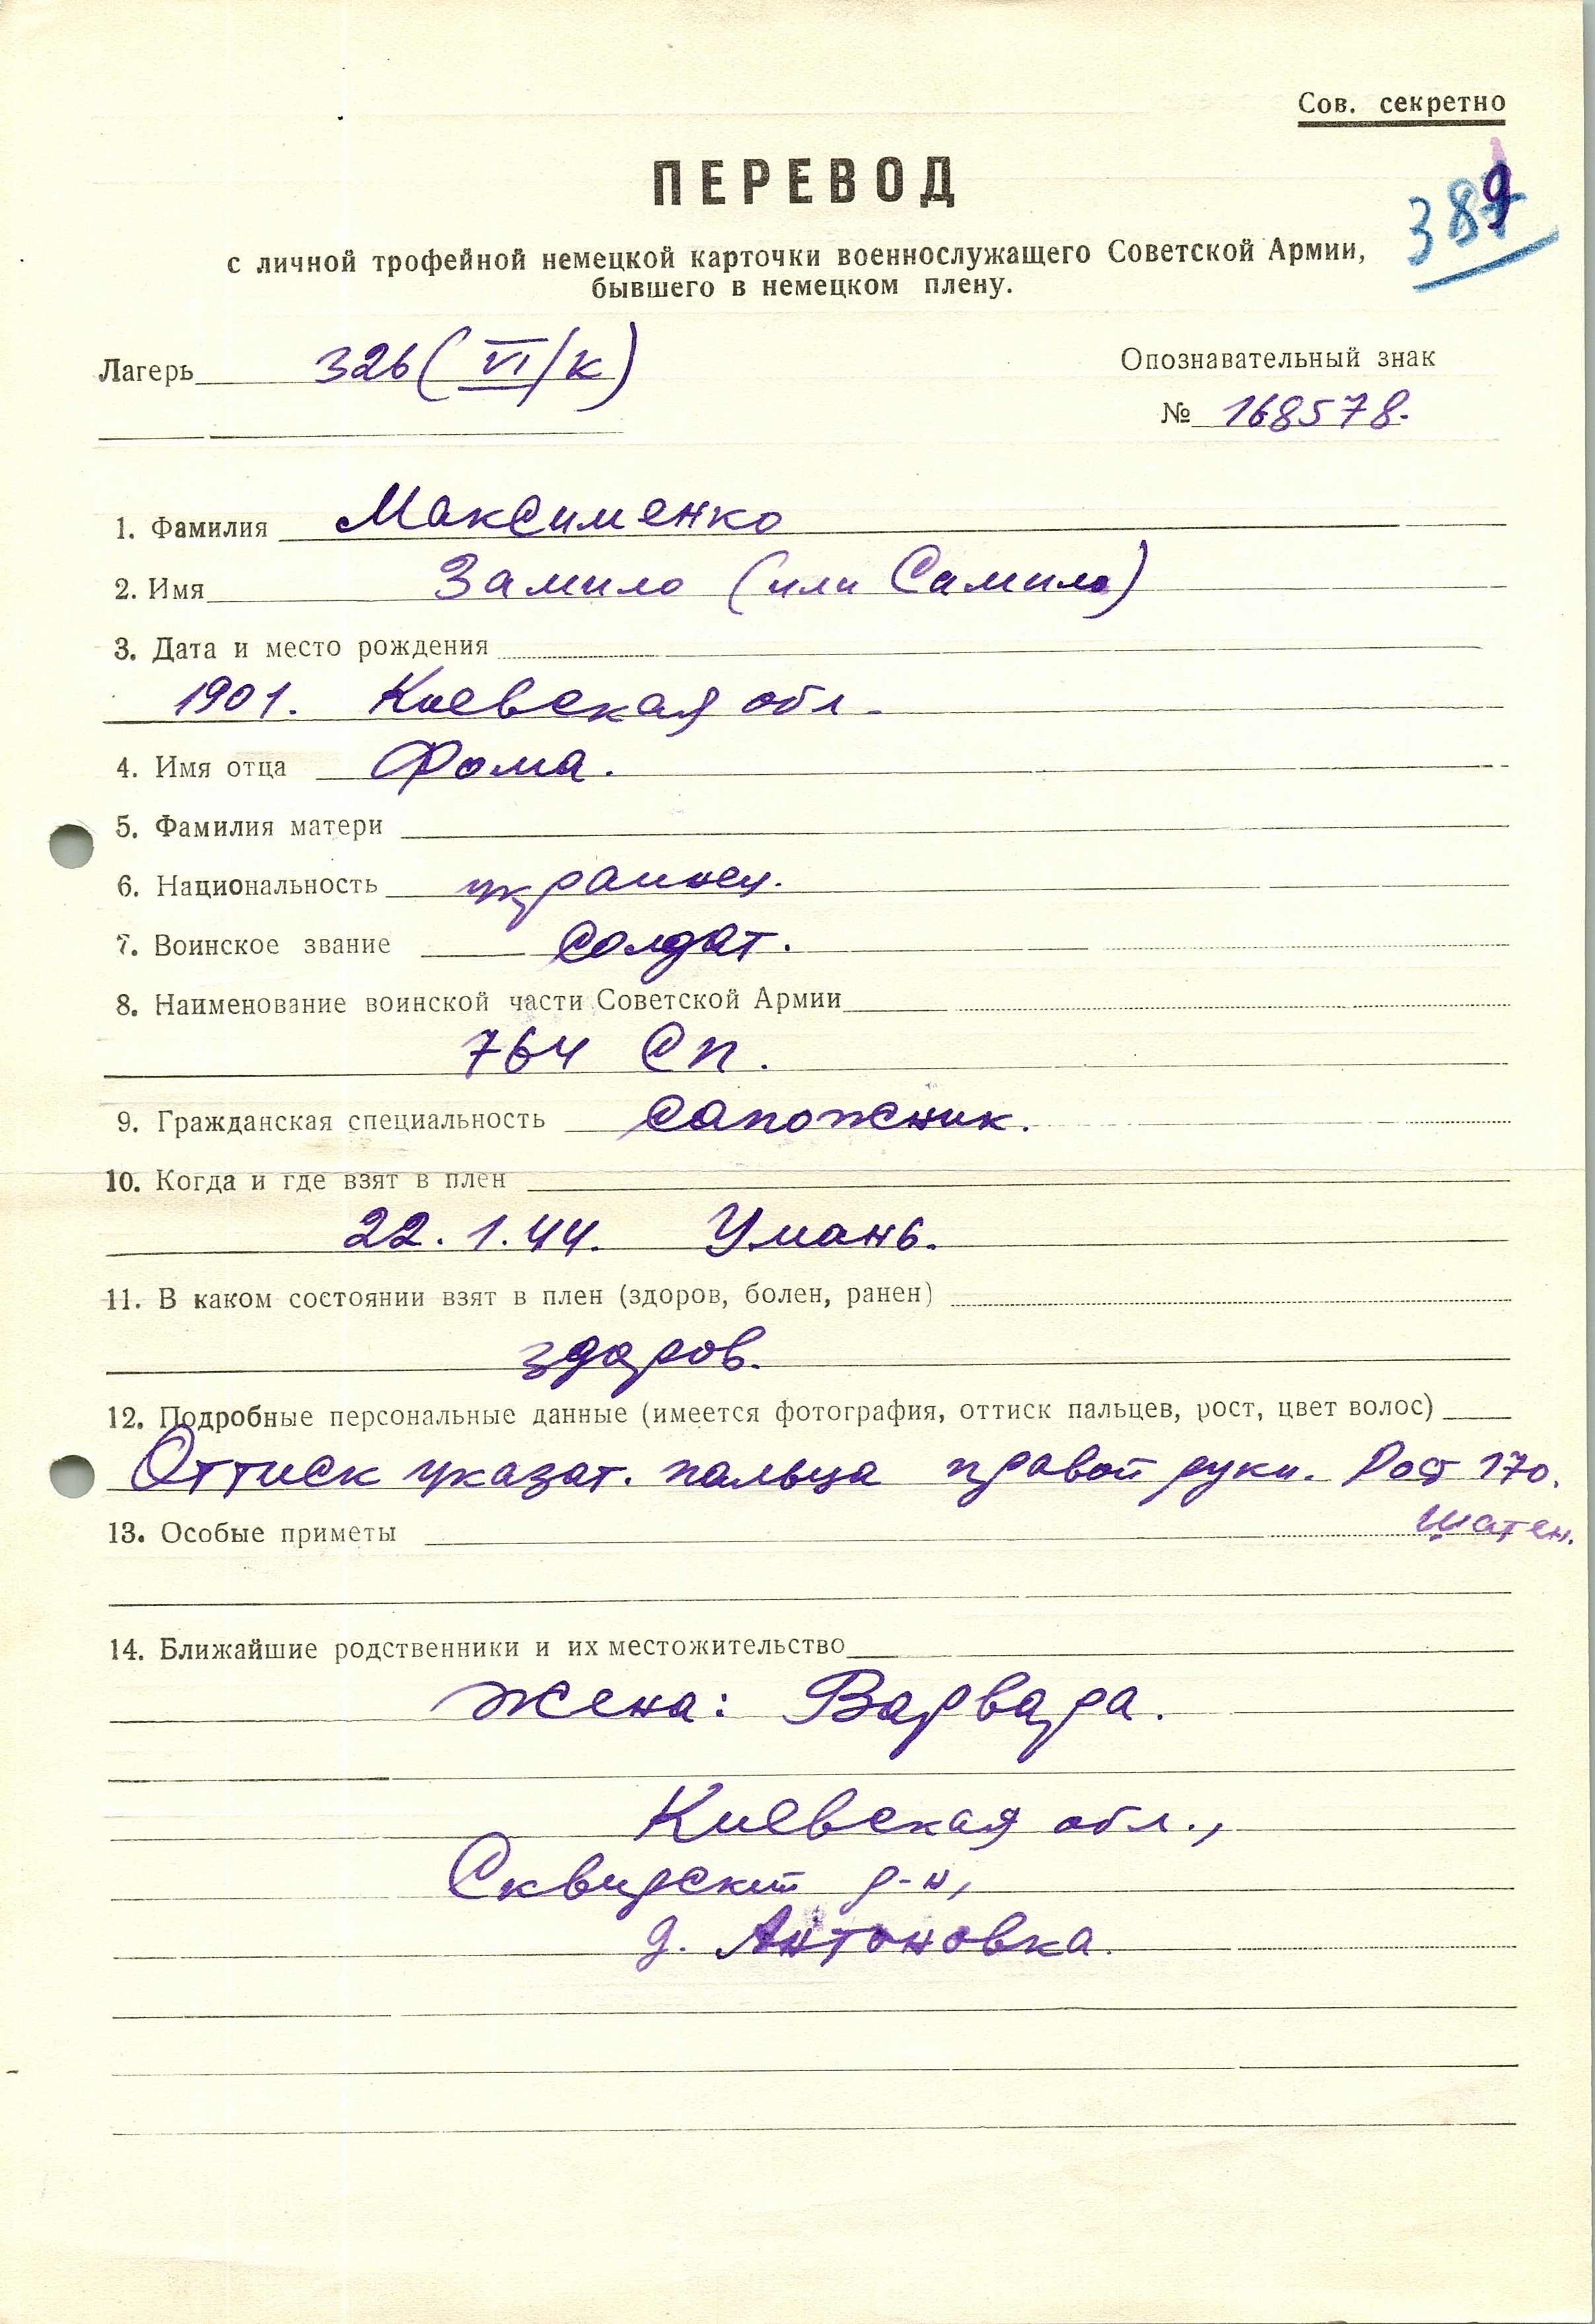 Сов. секретно
ПЕРЕВОД
389
с личной трофейной немецкой карточки военнослужащего Советской Армии,
бывшего в немецком плену.
Лагерь 326 (VI/К)
Опознавательный знак
№ 168578.
1. Фамилия Максименко
2. Имя Замило (или Самило)
3. Дата и место рождения
1901. Киевская обл.
4. Имя отца Фома.
5. Фамилия матери
6. Национальность украинец.
7. Воинское звание солдат.
8. Наименование воинской части Советской Армии
764 СП.
9. Гражданская специальность сапожник.
10. Когда и где взят в плен
22.1.44. Умань.
11. В каком состоянии взят в плен (здоров, болен, ранен)
здоров.
12. Подробные персональные данные (имеется фотография, оттиск пальцев, рост, цвет волос)
Оттиск указат. пальца правой руки. Рост 170.
шатен.
13. Особые приметы
14. Ближайшие родственники и их местожительство
жена: Варвара.
Киевская обл.,
Сквирский р-н,
д. Антоновка.